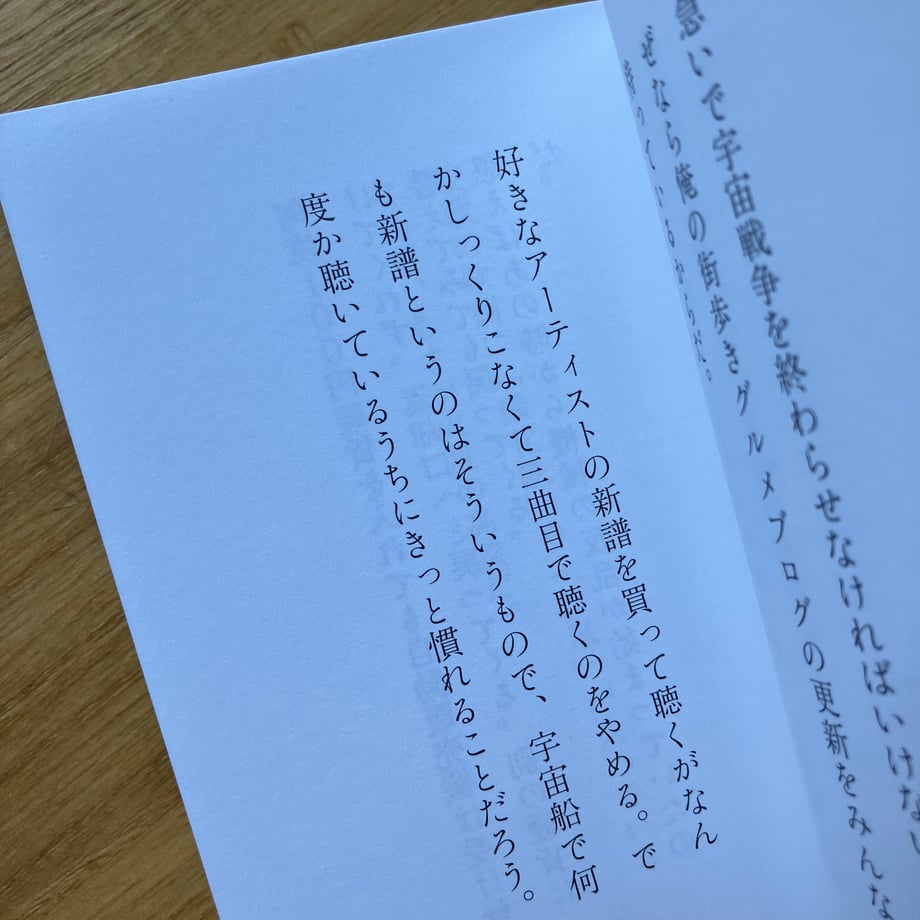 急いで宇宙戦争を終わらせなければいけない
ぜなら俺の街歩きグルメブログの更新をみんな
待っているからだ。
好きなアーティストの新譜を買って聴くがなん
かしっくりこなくて三曲目で聴くのをやめる。で
も新譜というのはそういうもので、宇宙船で何
度か聴いているうちにきっと慣れることだろう。